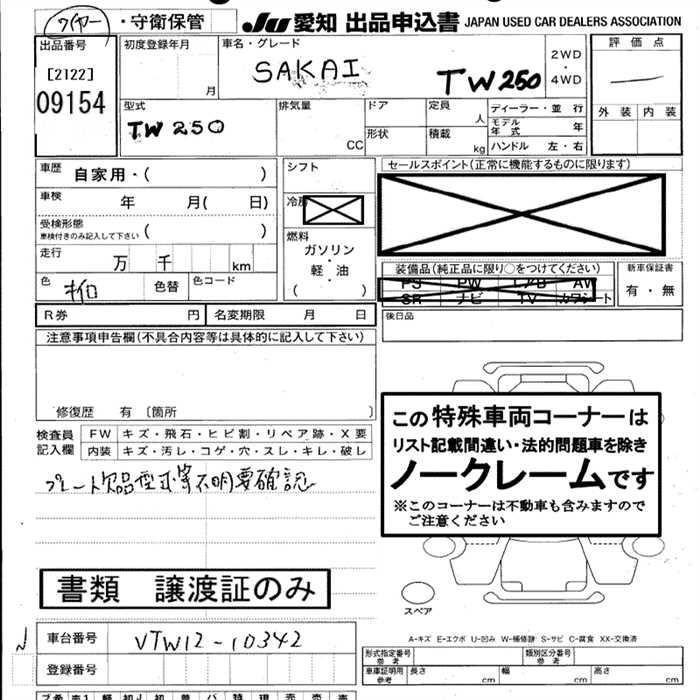 ワイヤー・守衛保管
JU 愛知 出品申込書 JAPAN USED CAR DEALERS ASSOCIATION
出品番号
[2122]
09154
初度登録年月
月
車名・グレード
SAKAI TW250
2WD
・
4WD
評価点
外装 内装
型式
TW250
排気量
CC
ドア
形状
定員
人
積載
kg
ディーラー・並 行
モデル年式 年
ハンドル 左・右
車歴 自家用・( )
車検 年 月( 日)
受検形態
車検付きのみ記入して下さい ( )
走行 万 千 km
色 色替 色コード
シフト
燃料
ガソリン
・
軽・油
( )
セールスポイント(正常に機能するものに限ります)
装備品(純正品に限り○をつけてください)
PS PW AW
SR ナビ TV カワシート
新車保証書
有・無
後日品
R券 円 名変期限 月 日
注意事項申告欄(不具合内容等は具体的に記入して下さい)
修復歴 有 〔箇所 〕
検査員
記入欄
FW キズ・飛石・ヒビ割・リペア跡・X要
内装 キズ・汚レ・コゲ・穴・スレ・キレ・破レ
プレート欠品型式等不明要確認
この特殊車両コーナーは
リスト記載間違い・法的問題車を除き
ノークレームです
※このコーナーは不動車も含みますので
ご注意ください
書類 譲渡証のみ
スペア
車台番号 VTW12-10342
登録番号
A-キズ E-エクボ U-凹み W-補修跡 S-サビ C-腐食 XX-交換済
形式指定番号
参考
類別区分番号
参考
車庫証明用
参考
長さ cm 幅 cm 高さ cm